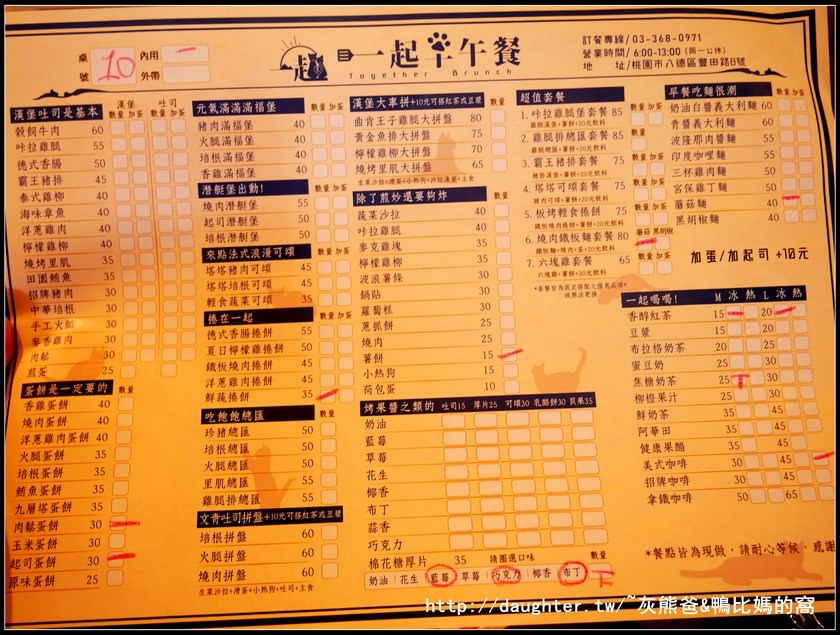 桌號 10 內用 一
外帶
一起 一起早午餐
Together Brunch
訂餐專線/03-368-0971
營業時間/6:00-13:00(周一公休)
地 址/桃園市八德區豐田路8號
漢堡吐司是基本 漢堡 數量 加蛋 吐司 數量 加蛋
穀飼牛肉 60
咔拉雞腿 55
德式香腸 50
霸王豬排 45
泰式雞柳 40
海味章魚 40
洋蔥雞肉 40
檸檬雞柳 40
燒烤里肌 35
田園鮪魚 35
招牌豬肉 30
中華培根 30
手工火腿 30
麥香雞肉 30
肉鬆 30
煎蛋 25
蛋餅是一定要的 數量
香雞蛋餅 40
燒肉蛋餅 40
洋蔥雞肉蛋餅 40
火腿蛋餅 35
培根蛋餅 35
鮪魚蛋餅 35
九層塔蛋餅 35
肉鬆蛋餅 30
玉米蛋餅 30
起司蛋餅 30
原味蛋餅 25
元氣滿滿滿福堡 數量 加蛋
豬肉滿福堡 40
火腿滿福堡 40
培根滿福堡 40
香雞滿福堡 40
潛艇堡出動! 數量 加蛋
燒肉潛艇堡 55
起司潛艇堡 50
培根潛艇堡 50
來點法式浪漫可頌 數量 加蛋
塔塔豬肉可頌 45
塔塔培根可頌 45
輕食蔬菜可頌 35
捲在一起 數量 加蛋
德式香腸捲餅 55
夏日檸檬雞捲餅 50
鐵板燒肉捲餅 45
洋蔥雞肉捲餅 45
鮮蔬捲餅 45
吃飽飽總匯 數量
珍豬總匯 50
培根總匯 50
火腿總匯 50
里肌總匯 55
雞腿排總匯 55
文青吐司拼盤+10元可搭紅茶或豆漿
培根拼盤 60
火腿拼盤 60
燒肉拼盤 60
生菜沙拉+滑蛋+小熱狗+吐司+主食
漢堡大車拼+10元可搭紅茶或豆漿 數量 加蛋
曲肯王子雞腿大拼盤 80
黃金魚排大拼盤 75
檸檬雞柳大拼盤 70
燒烤里肌大拼盤 65
生菜沙拉+滑蛋+小熱狗+沙拉漢堡+主食
除了煎炒還要夠炸 數量
蔬菜沙拉 40
咔啦雞腿 40
麥克雞塊 35
檸檬雞柳 40
波浪薯條 30
鍋貼 30
蘿蔔糕 30
蔥抓餅 25
燒肉 25
薯餅 15
小熱狗 15
荷包蛋 10
烤果醬之類的 吐司15 厚片25 可頌30 乳酪餅30 貝果35
奶油
藍莓
草莓
花生
椰香
布丁
蒜香
巧克力
棉花糖厚片 35 請圈選口味 數量
奶油 花生 藍莓 草莓 巧克力 椰香 布丁
超值套餐 數量 加蛋
1. 咔拉雞腿堡套餐 85
雞腿漢堡+薯餅+20元飲料
2. 雞腿排總匯套餐 85
雞腿總匯+薯餅+20元飲料
3. 霸王豬排套餐 75
豬排漢堡+薯餅+20元飲料
4. 塔塔可頌套餐 75
豬肉可頌+薯餅+20元飲料
5. 板烤輕食捲餅 75
鐵板燒肉捲餅+薯餅+20元飲料
6. 燒肉鐵板麵套餐 80 蘑菇 黑胡椒
鐵板麵+燒肉+蛋+20元飲料
7. 六塊雞套餐 65
六塊雞+薯餅+20元飲料
*套餐皆為固定搭配之優惠品項*
恕無法更換
早餐吃麵很潮 數量 加蛋
奶油白醬義大利麵 60
青醬義大利麵 60
波隆那肉醬麵 55
印度咖哩麵 55
三杯雞肉麵 50
宮保雞丁麵 50
蘑菇麵 40
黑胡椒麵 40
加蛋/加起司 +10元
一起喝喝! M 冰 熱 L 冰 熱
香醇紅茶 15 20
豆漿 15 20
布拉格奶茶 20 25
蜜豆奶 25 30
焦糖奶茶 25 30
柳橙果汁 25 30
鮮奶茶 35 45
阿華田 35 45
健康果醋 35 45
美式咖啡 30 45
招牌咖啡 30 45
拿鐵咖啡 50 65
*餐點皆為現做,請耐心等候,感謝
http://daughter.tw/~灰熊爸&鴨比媽的窩